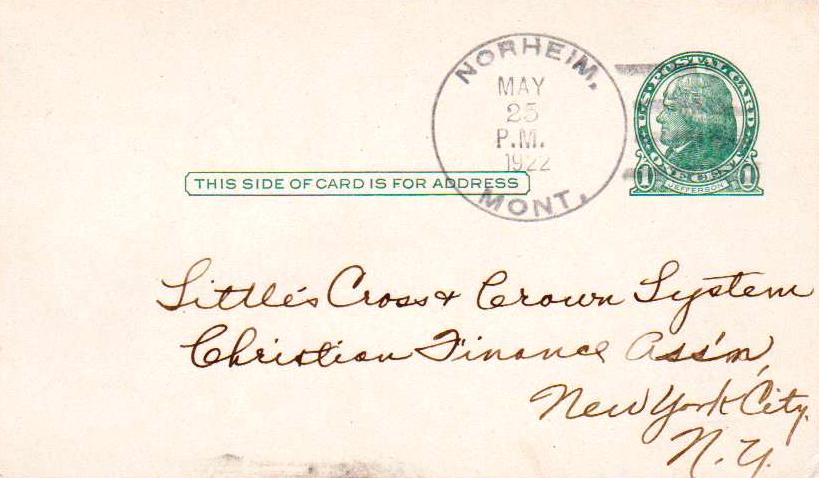 NORHEIM,
MAY
25
P.M.
1922
MONT.
U·S·POSTAL CARD
ONE CENT
1 JEFFERSON 1
THIS SIDE OF CARD IS FOR ADDRESS
Little's Cross & Crown System
Christian Finance Ass'n,
New York City.
N. Y.